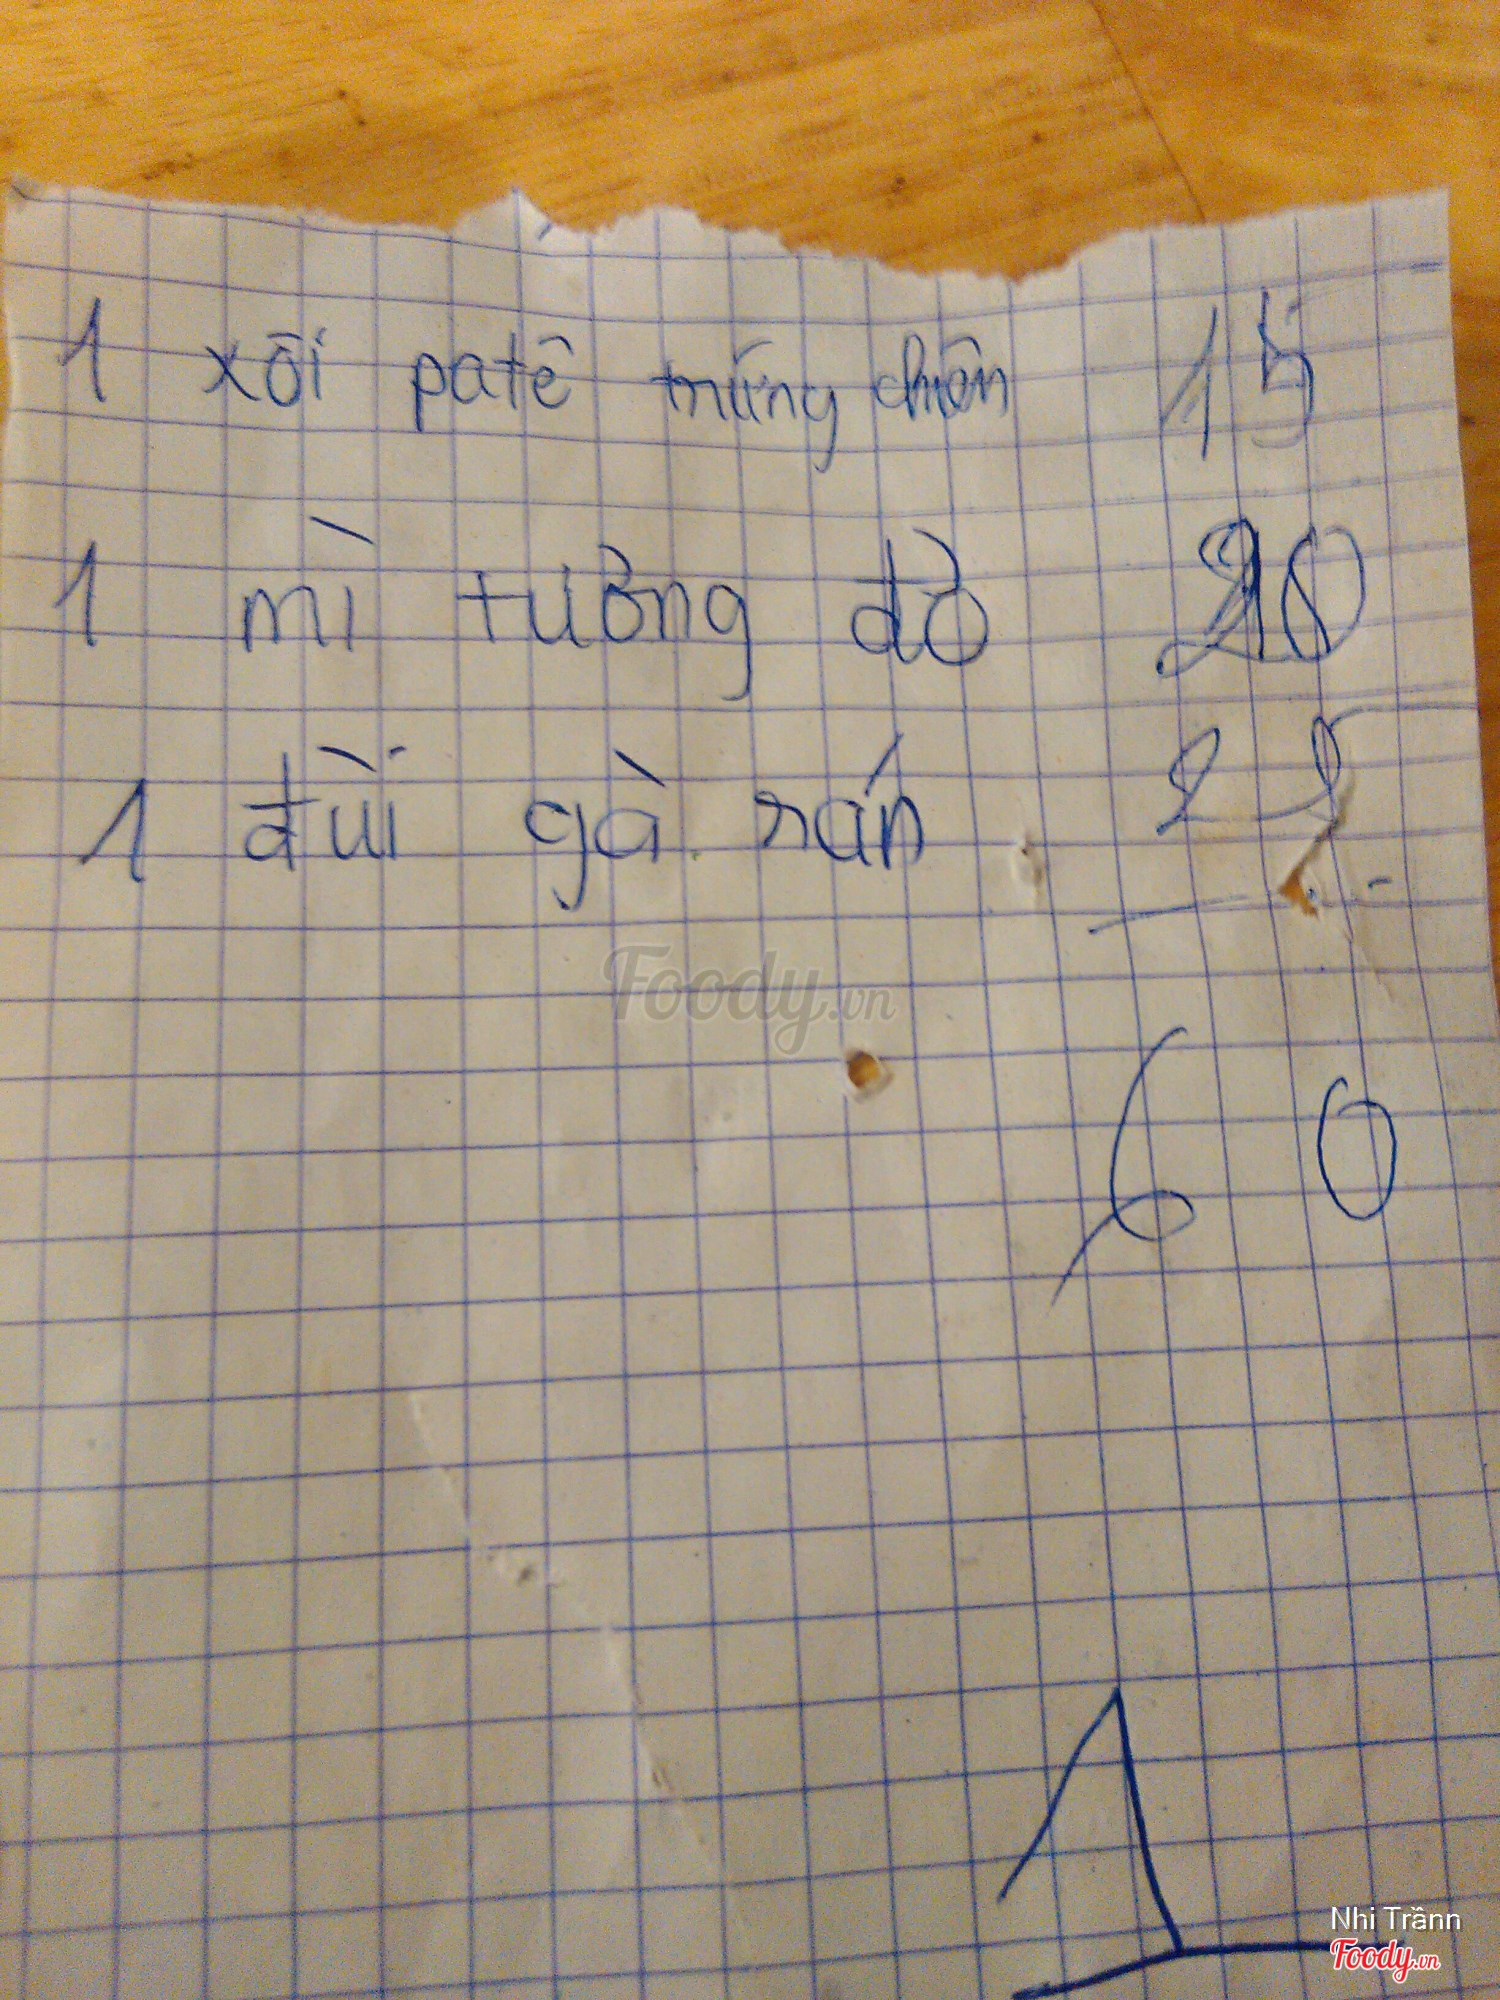 1 xôi patê trứng chiên 15
1 mì tưởng đỏ 20
1 đùi gà rán 25
60
Foody.vn
1
Nhi Trầnn
Foody.vn